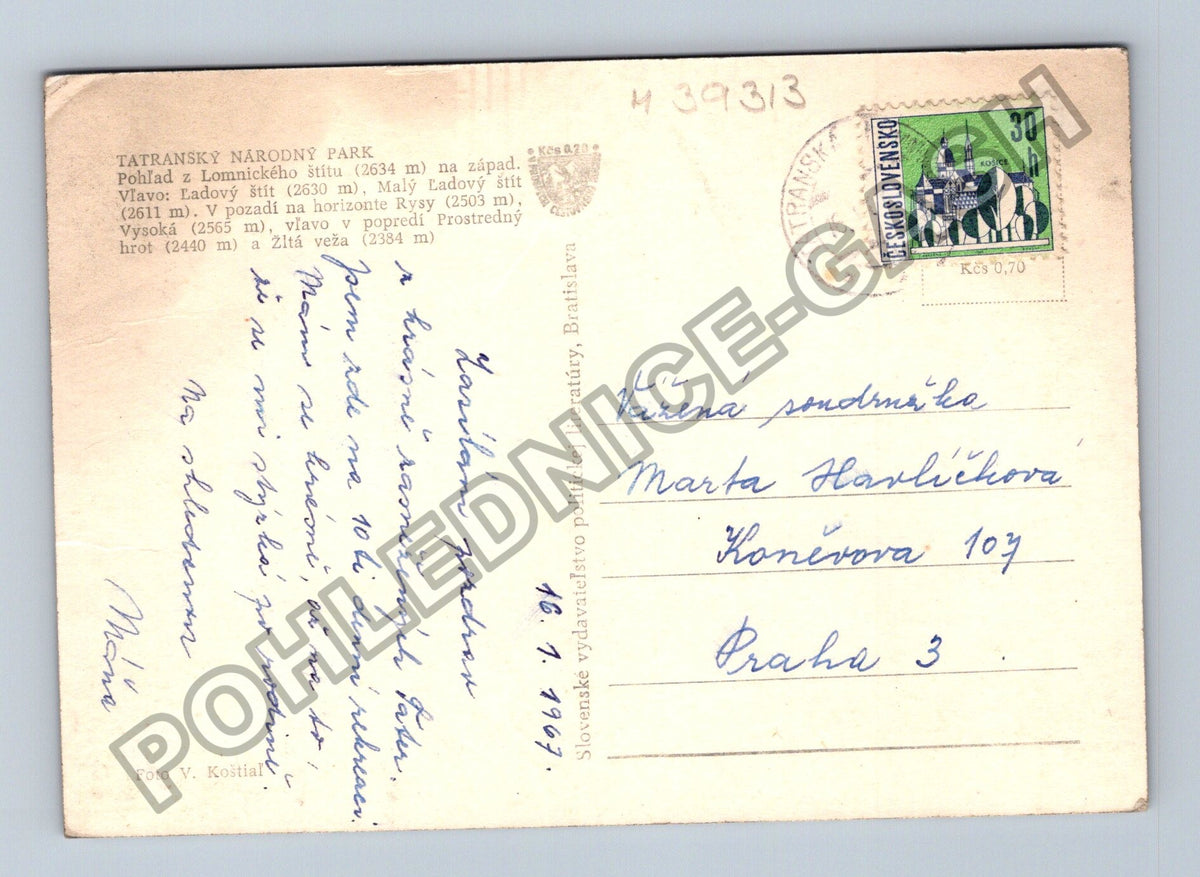 M 39313
TATRANSKÝ NÁRODNÝ PARK
Pohľad z Lomnického štítu (2634 m) na západ.
Vľavo: Ľadový štít (2630 m), Malý Ľadový štít
(2611 m). V pozadí na horizonte Rysy (2503 m),
Vysoká (2565 m), vľavo v popredí Prostredný
hrot (2440 m) a Žltá veža (2384 m)
Kčs 0.20
TATRANSKÁ
ČESKOSLOVENSKO
30
h
KOŠICE
Kčs 0,70
16. 1. 1967.
Zasílám pozdrav
z krásně zasněžených Tater.
Jsem zde na 10ti denní rekreaci
Mám se krásně, až na to,
že se mi stýská po rodině.
Na shledanou
Máňa
Slovenské vydavateľstvo politickej literatúry, Bratislava
Vážená soudružka
Marta Havlíčková
Koněvova 107
Praha 3
Foto V. Koštiaľ
POHLEDNICE-GACH